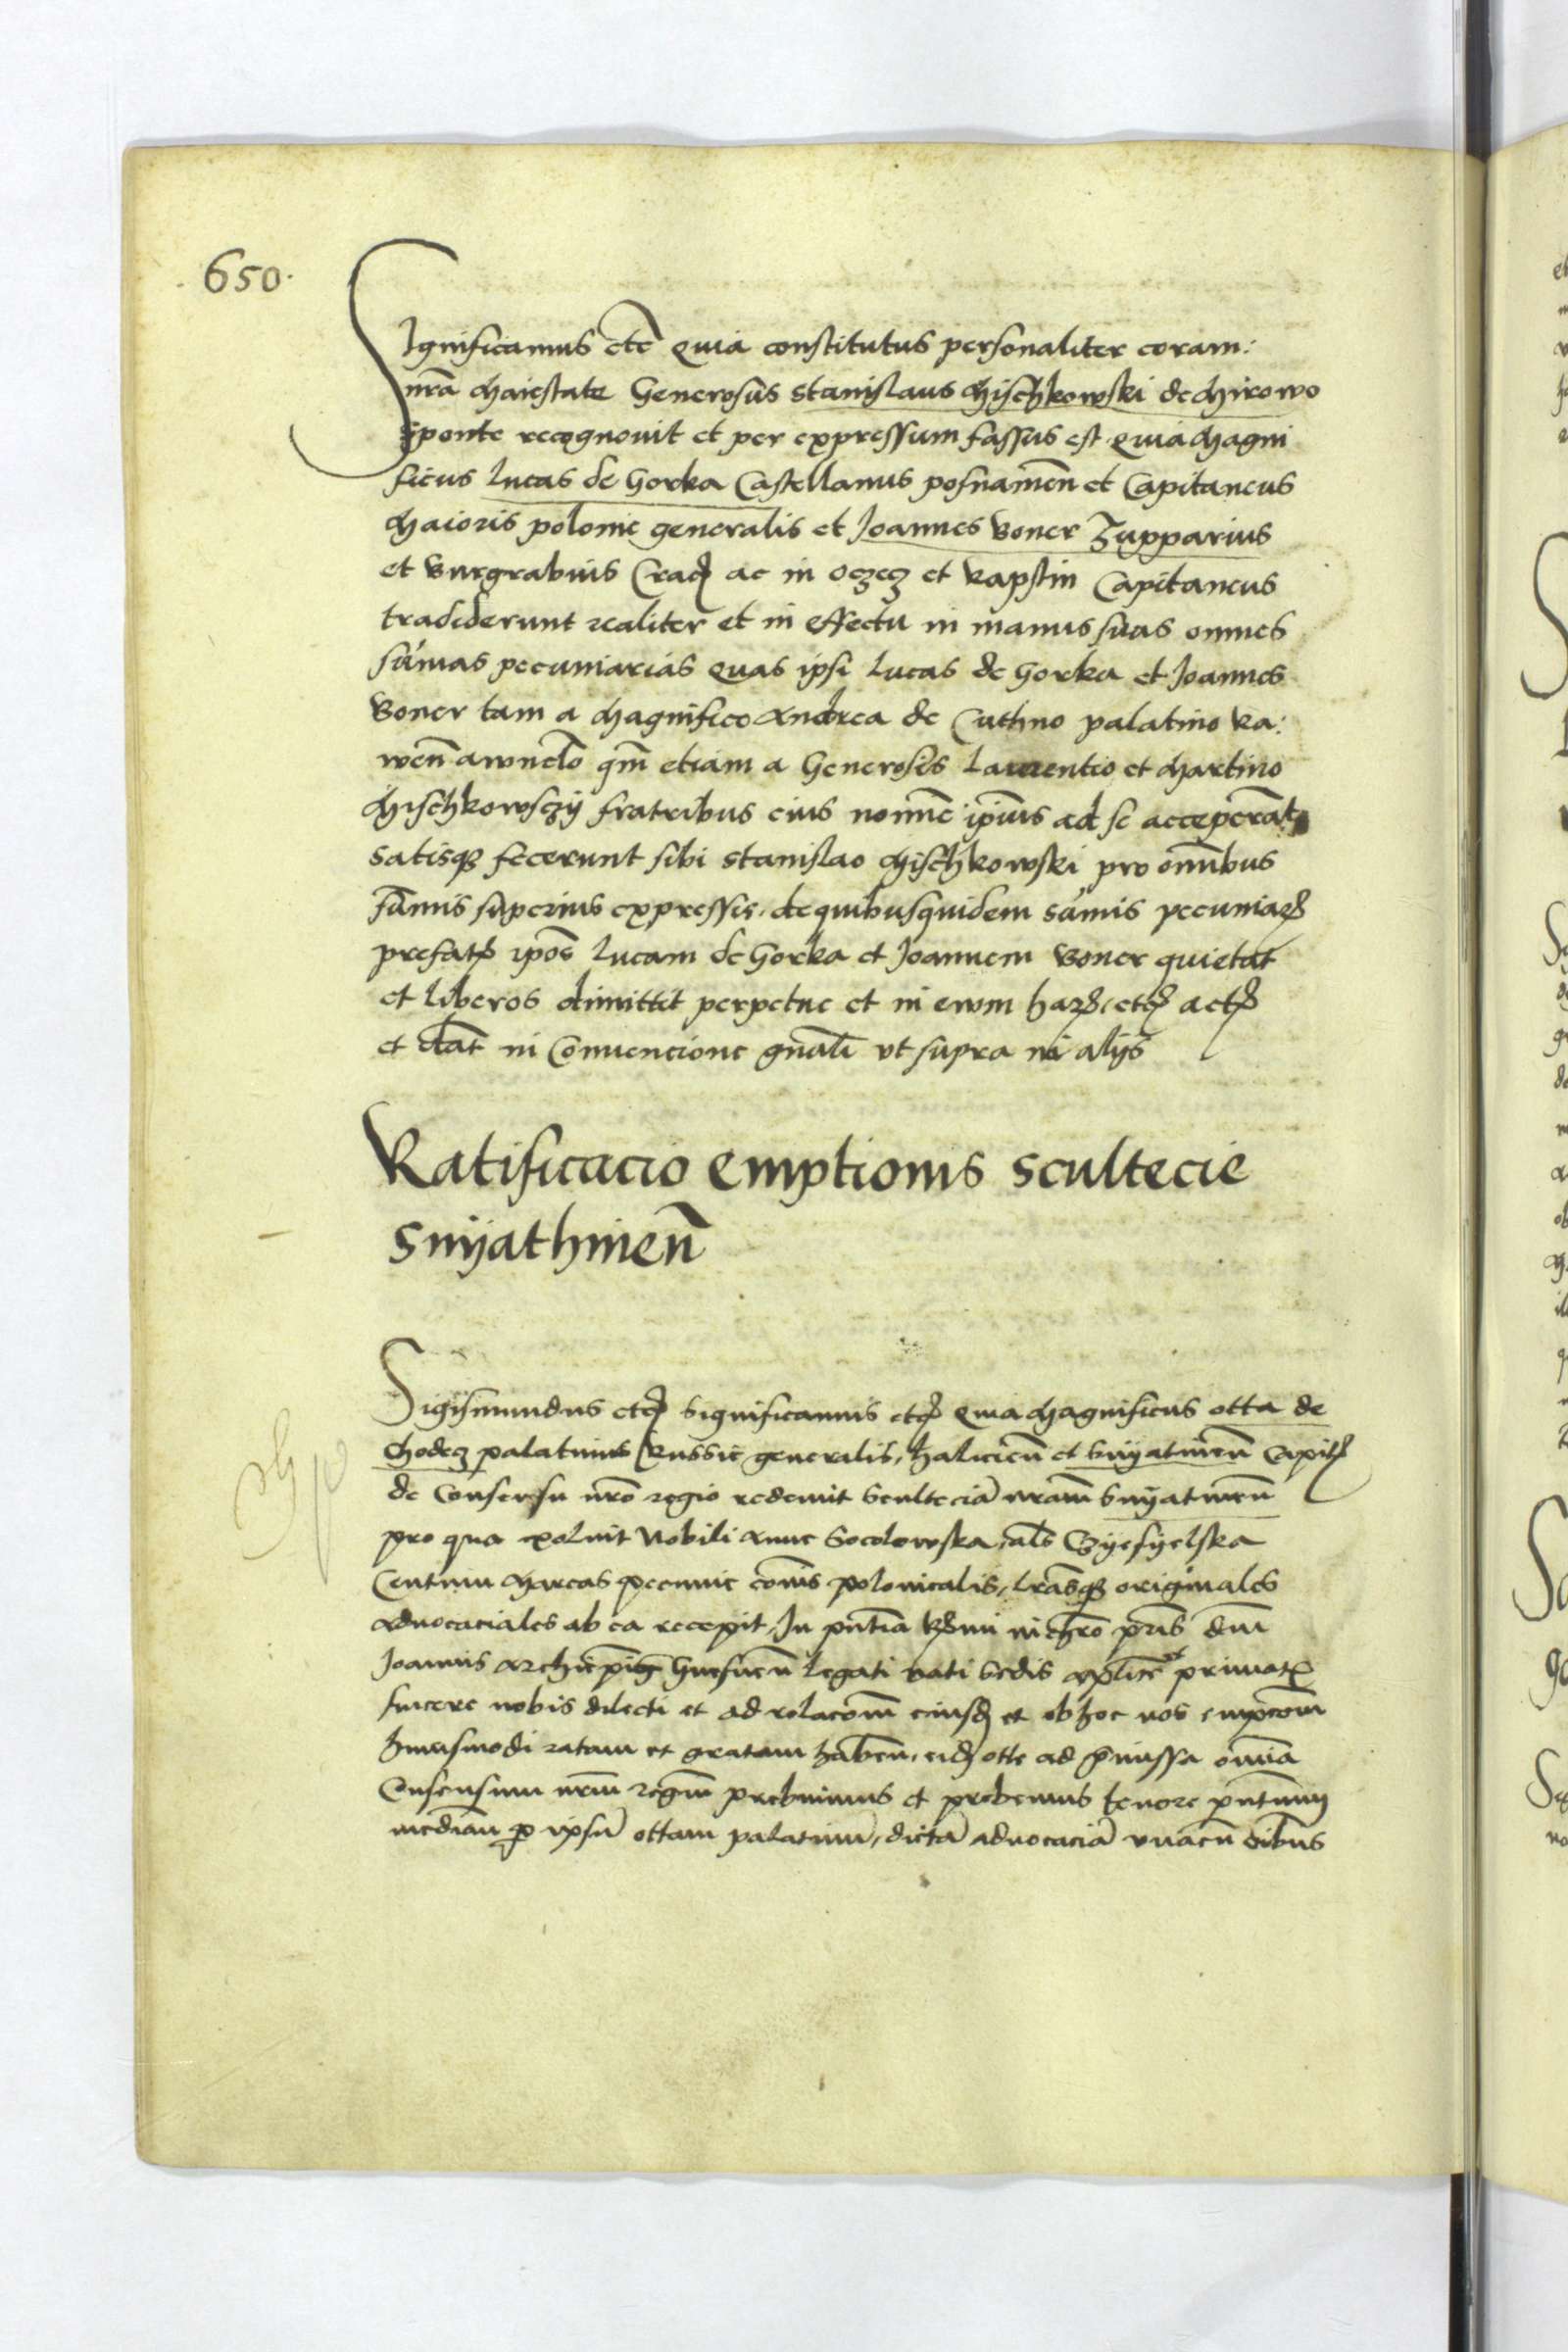 650.
Significamus etc̄ Quia constitutus personaliter coram:
nrā Maiestate Generosus Stanislaus Myschkowski de Mirowo
sponte recognouit et per expressum fassus est quia Magni
ficus Lucas de Gorka Castellanus posnamen̄ et Capitaneus
Maioris polonie generalis et Joannes Boner Zupparius
et Burgrabius Crac̄ ac in Oczecz et Rapstin Capitaneus
tradiderunt realiter et in effectu in manus suas omnes
sūmas pecuniarias quas ipsi Lucas de Gorka et Joannes
Boner tam a Magnifico Andrea de Cuthno palatino Ra:
wen̄ awnclo qm̄ etiam a Generosis Laurentio et Martino
Mischkowsczÿ fratribus eius nomīe ipīus ad se acceperāt
satisq3 fecerunt sibi Stanislao Mischkowski pro om̄ibus
sūmis superius expressis, de quibusquidem sūmis pecuniar̄
prefat̄ ipos̄ Lucam de Gorka et Joannem Boner quietat
et liberos dimittit perpetue et in ewm har̄, etc̄ act̄
et dat̄ in Conuencione gnāli vt supra in alijs
Ratificacio emptionis scultecie
Snÿathinen̄
Sigismundus etc̄ Significamus etc̄ Quia Magnificus Otta de
Chodecz palatinus Russie generalis, halicien̄ et Snÿatinen̄ Capit̄
de Consensu nrō regio redemit Scultecia̅ nram̄ Snÿatinen̄
pro qua exoluit Nobili Anne Socolowska, als̄ Czyesyelska
Centum Marcas pecunie com̄is polonicalis, lrāsq3 originales
aduocaciales ab ea recepit, In pn̄tia R̄dmi in chrō pris̄ dn̄i
Joannis Archiepi̅ Gnesnen̄ Legati nati Sedis aplice̅ et primat̄
sincere nobis dilecti et ad relacom̄ eiusd̄ et ob hoc nos empcom̄
huiusmodi ratam et gratam haben̄, eid̄ Otte ad p̄missa omīa
Consensum nrm̄ regm̄ prebuimus et prebemus tenore pn̄tium
median̄ p̄ ipsu̅ Ottam palatinu̅, dicta̅ aduocacia̅ vnacu̅ oībus